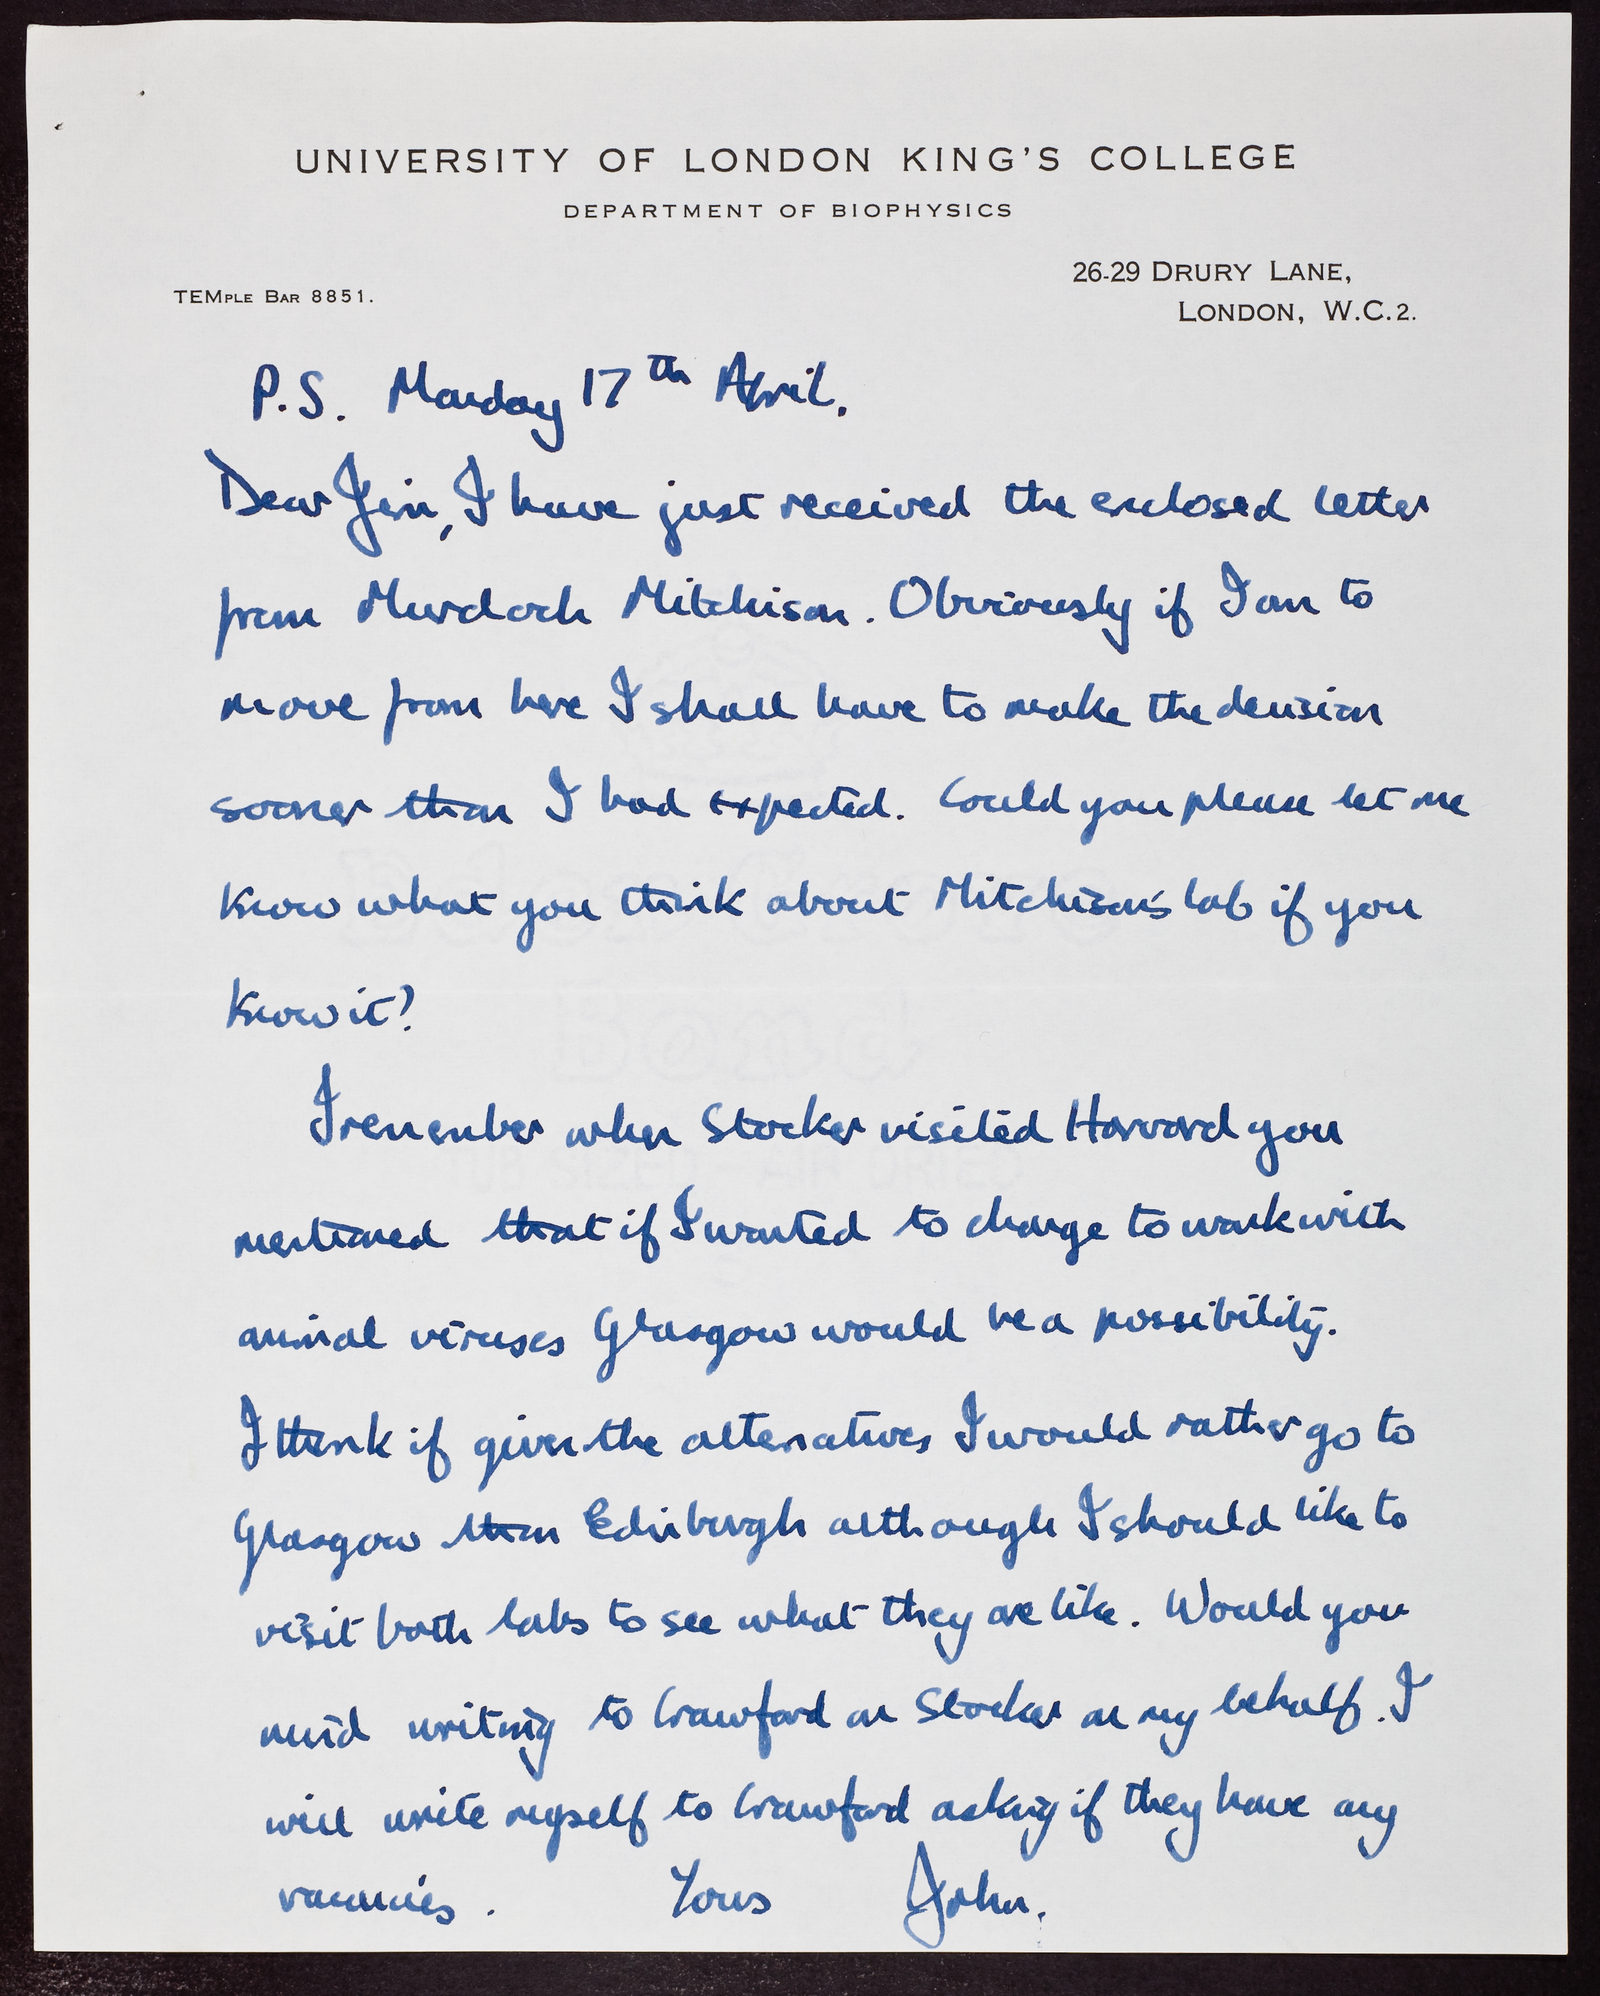 UNIVERSITY OF LONDON KING'S COLLEGE
DEPARTMENT OF BIOPHYSICS
26-29 DRURY LANE,
TEMPLE BAR 8851.
LONDON, W.C.2.
P.S. Monday 17th April.
Dear Jim, I have just received the enclosed letter
from Murdoch Mitchison. Obviously if I am to
move from here I shall have to make the decision
sooner than I had expected. Could you please let me
know what you think about Mitchison's lab if you
know it?
I remember when Stocker visited Harvard you
mentioned that if I wanted to change to work with
animal viruses Glasgow would be a possibility.
I think if given the alternatives I would rather go to
Glasgow than Edinburgh although I should like to
visit both labs to see what they are like. Would you
mind writing to Crawford or Stocker on my behalf. I
will write myself to Crawford asking if they have any
vacancies. Yours John.